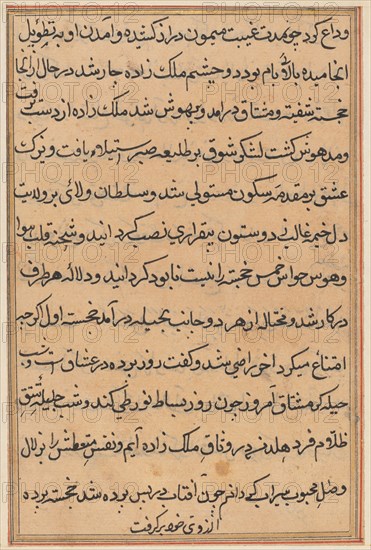 وداع کرد چون مدت غیبت میمون دراز کشیده و آمدن او به تطویل
انجامیده بالای بام بود دو چشم ملک زاده چار شد در حال از انجا
خجسته شفته و مشتاق درآمد و بیهوش شد ملک زاده از دست رفت
ومدهوش کشت لشکر شوق بر طلیعه صبر استیلاء یافت و ترک
عشق بر مقدمه سکون مستولی شد و سلطان ولائ بر ولایت
دل خیم غالب زد وستون بیقراری نصب کردانید و شحنه قلب هوا
وهوس حواس خمس خجسته را نیست نابود کردانید و دلاله هر طرف
در کار شد و محتاله از هر دو جانب بحیله درآمد خجسته اول اکرچه
امتناع میکرد اخر راضی شد و کفت روز پرده در عشاق است و شب
حیله کر مشتاق امروز چون روز بساط نور طی کند و شب
ظلام فرو هلد در وثاق ملک زاده آیم و نفس متعطش را بزلال
وصل محبوب سیراب کردانم چون آفتاب در پس پرده شد خجسته پرده
از روی خود بر کرفت